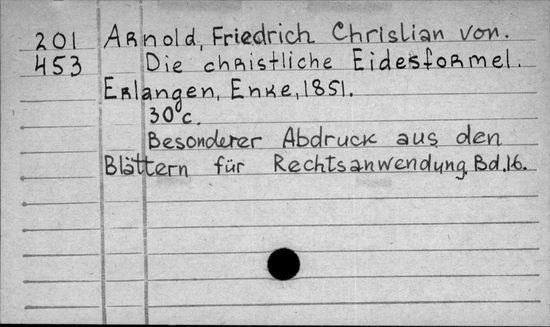 201 Arnold, Friedrich Christian von.
453 Die christliche Eidesformel.
Erlangen, Enke, 1851.
30 c.
Besonderer Abdruck aus den
Blättern für Rechtsanwendung, Bd. 16.